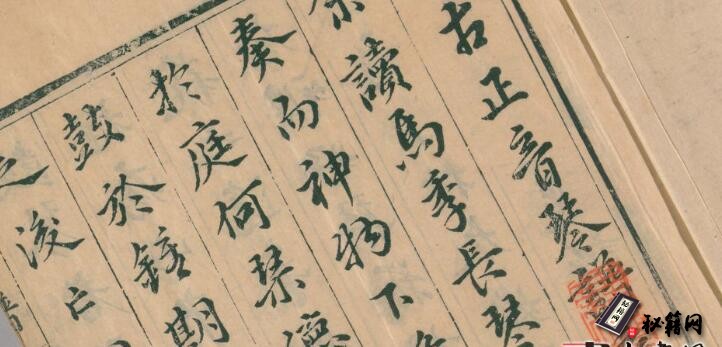 古正音琴譜
余讀馬季長琴
奏而神物下
於庭何琴德
鼓於鍾期
之後亡
秘籍网